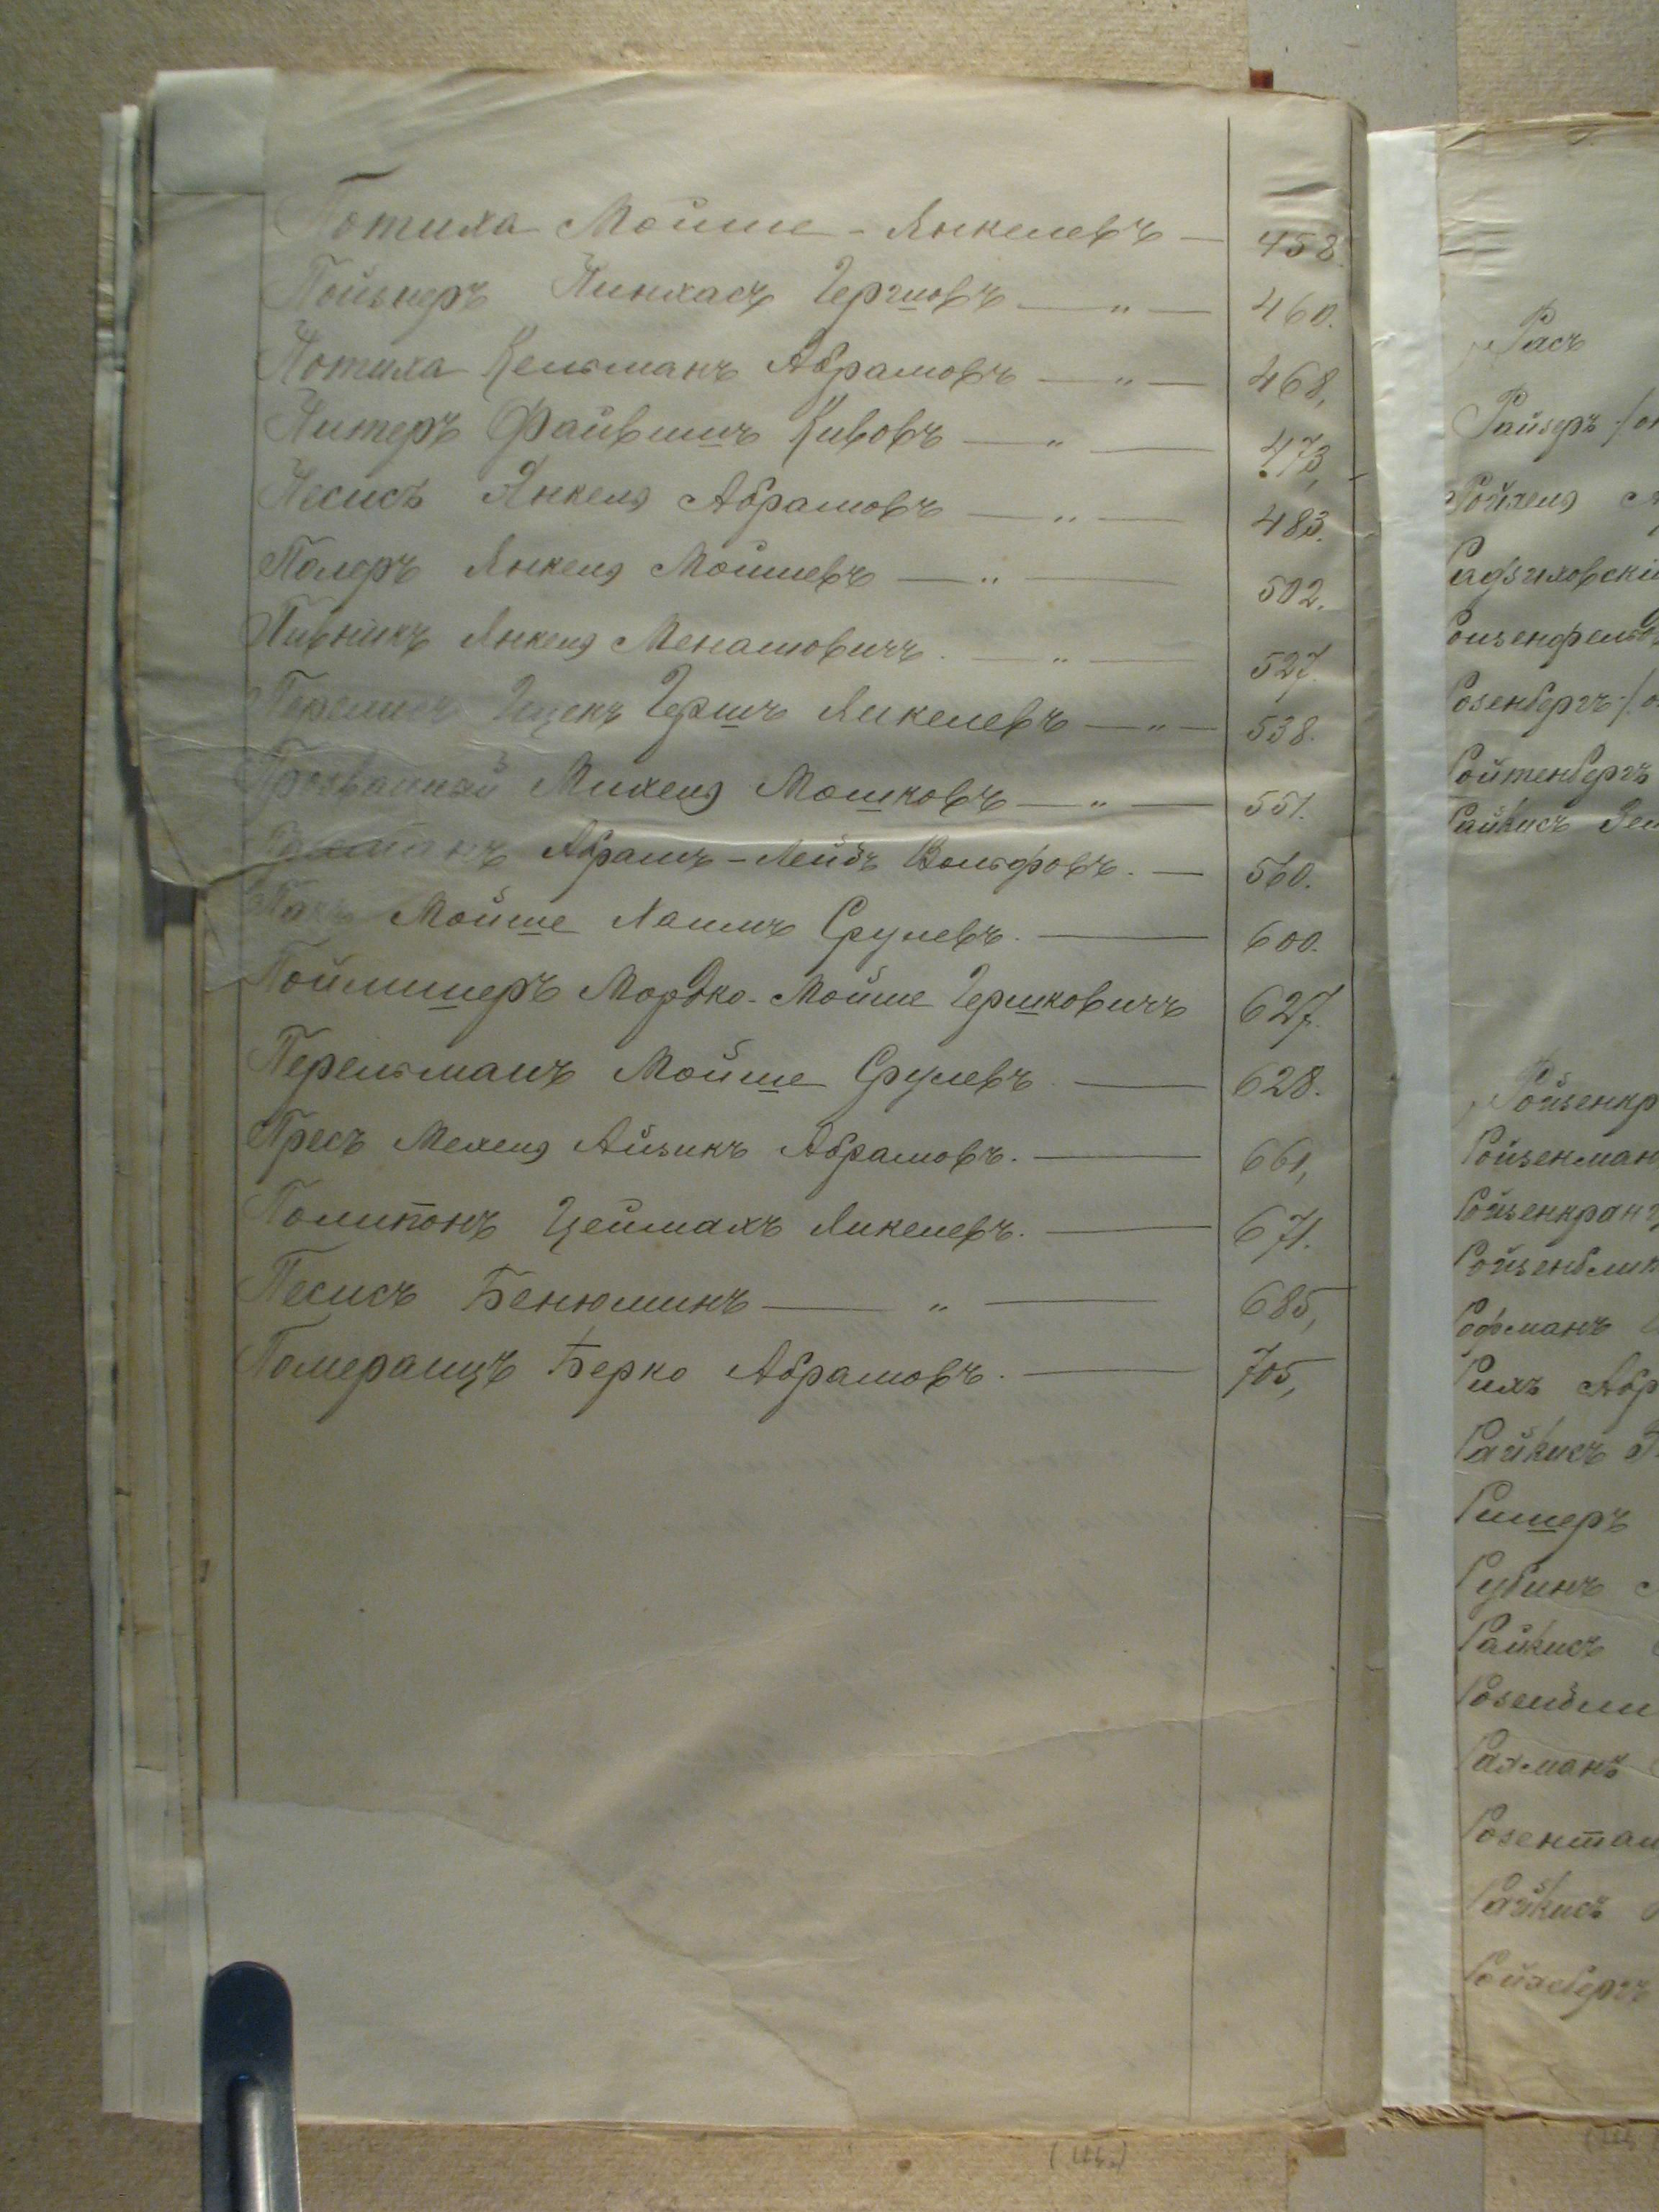 Потиха Мойше - Янкелевъ — 458.
Пойзнеръ Пинхасъ Гершовъ — " — 460.
Потиха Кельманъ Абрамовъ — " — 468,
Питеръ Файвишъ Кивовъ — " — 473,
Песисъ Янкель Абрамовъ — " — 483.
Полеръ Янкель Мошиевъ — " — 502.
Пивникъ Янкель Менашовичъ. — " — 527.
Гершъ Янкелевъ — " — 538.
Михель Мошковъ — " — 551.
Абрамъ - Лейбъ Вольфовъ. — 560.
Мойше Срулевъ. — 600.
Пойлишеръ Мордко - Мойше Гершковичъ 627.
Перельманъ Мойше Срулевъ. — 628.
Пресъ Мехель Айзикъ Абрамовъ. — 661,
Полипонъ Цеймахъ Янкелевъ. — 671.
Песисъ Бенюминъ — " — 685,
Померанцъ Берко Абрамовъ. — 705,
Расъ
Райзеръ
Ройхель
Розенбергъ
Ройтенбергъ
Райкисъ
Ройзенкр
Ройзенман
Ройзенкранц
Рофманъ
Рихъ Абр
Райкисъ
Ришеръ
Рубинъ
Райкисъ
Рахманъ
Розентал
Райкисъ